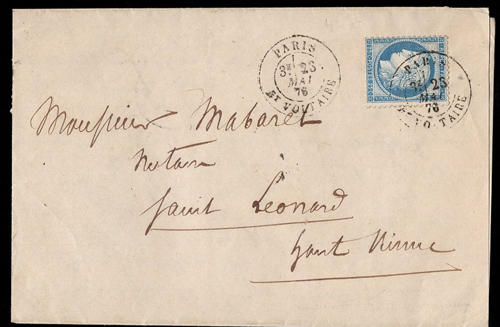 PARIS
3E 23
MAI
76
BT VOLTAIRE
PARIS
3E 23
MAI
76
BT VOLTAIRE
Monsieur Mabaret
Notaire
Saint Léonard
haute Vienne